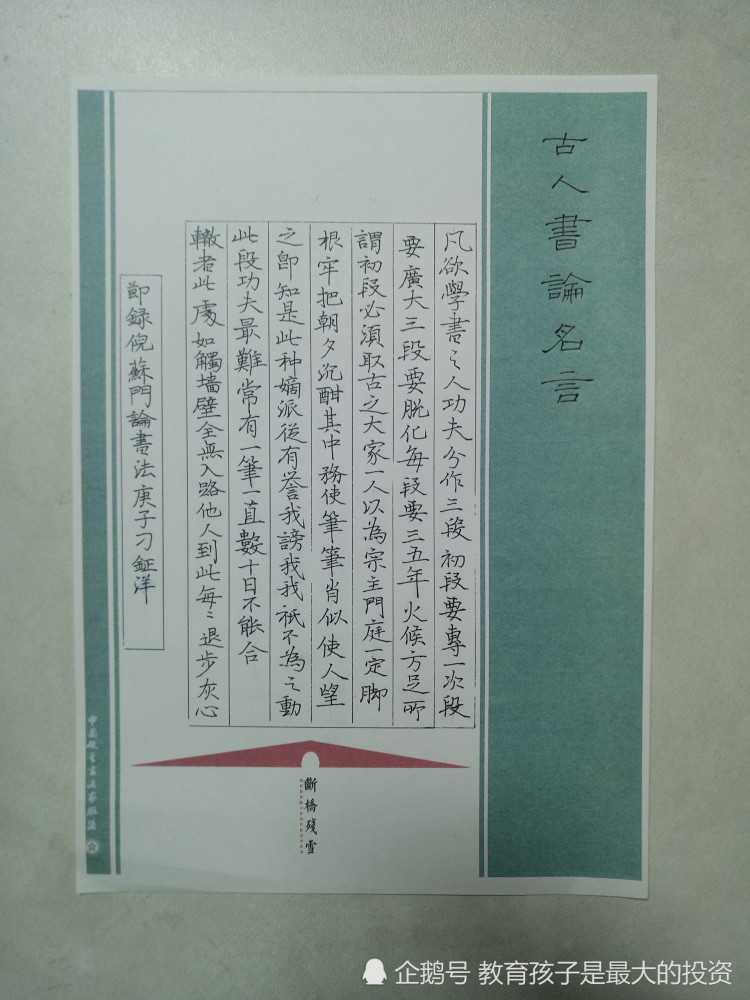 古人書論名言
凡欲學書之人功夫分作三段初段要專一次段
要廣大三段要脫化每段要三五年火候方足所
謂初段必須取古之大家一人以為宗主門庭一定脚
根牢把朝夕沉酣其中務使筆筆肖似使人望
之即知是此種嫡派從有譽我謗我我祇不為之動
此段功夫最難常有一筆一直數十日不能合
轍者此處如觸墙壁全無入路他人到此每々退步灰心
節録倪蘇門論書法庚子刁鉦洋
斷橋殘雪
企鹅号 教育孩子是最大的投资